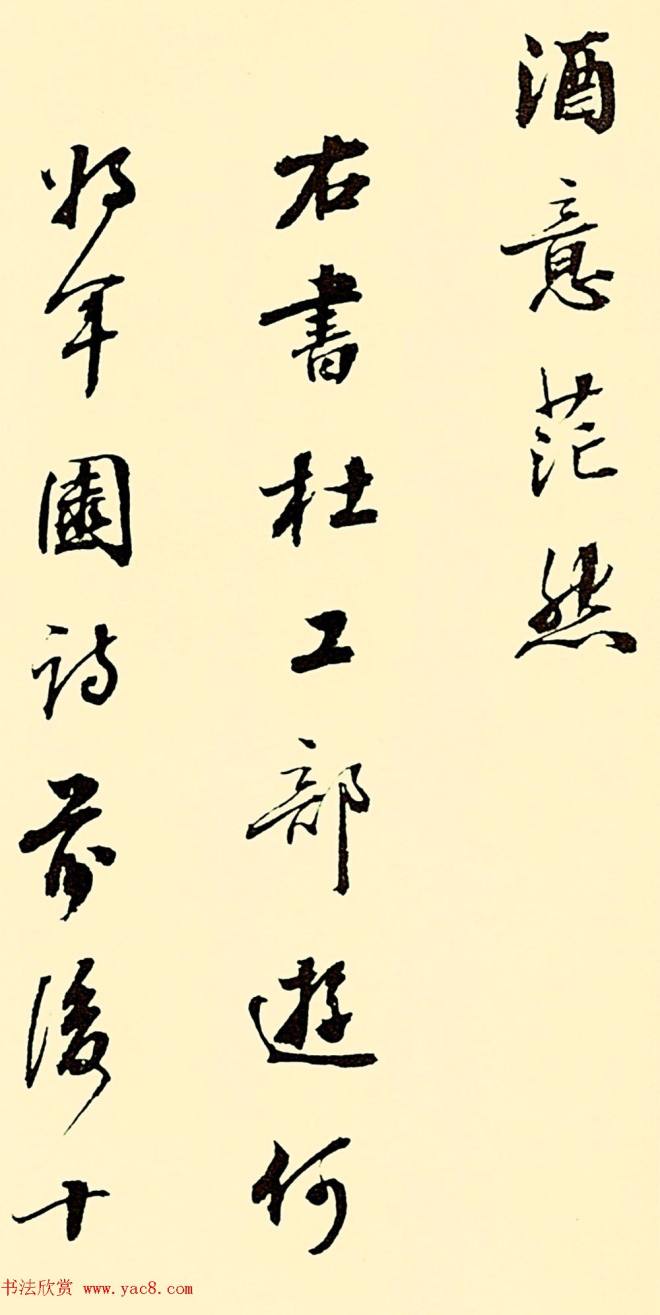 酒意茫然
右書杜工部遊何
將軍園詩前後十
书法欣赏 www.yac8.com